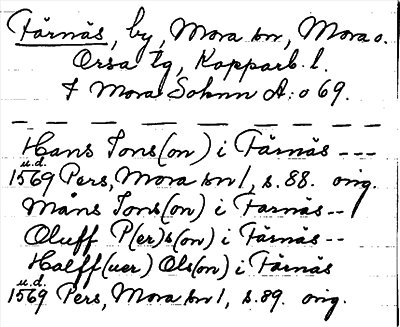 Färnäs, by, Mora sn, Mora o.
Orsa tg, Kopparb. l.
F Mora Soknn A:o 69.
Hans Jons(on) i Färnäs ---
u.d.
1569 Pers, Mora sn 1, s. 88. orig.
Måns Jons(on) i Färnäs --
Oluff P(er)s(on) i Färnäs --
Halff(uer) Ols(on) i Färnäs
u.d.
1569 Pers, Mora sn 1, s. 89. orig.